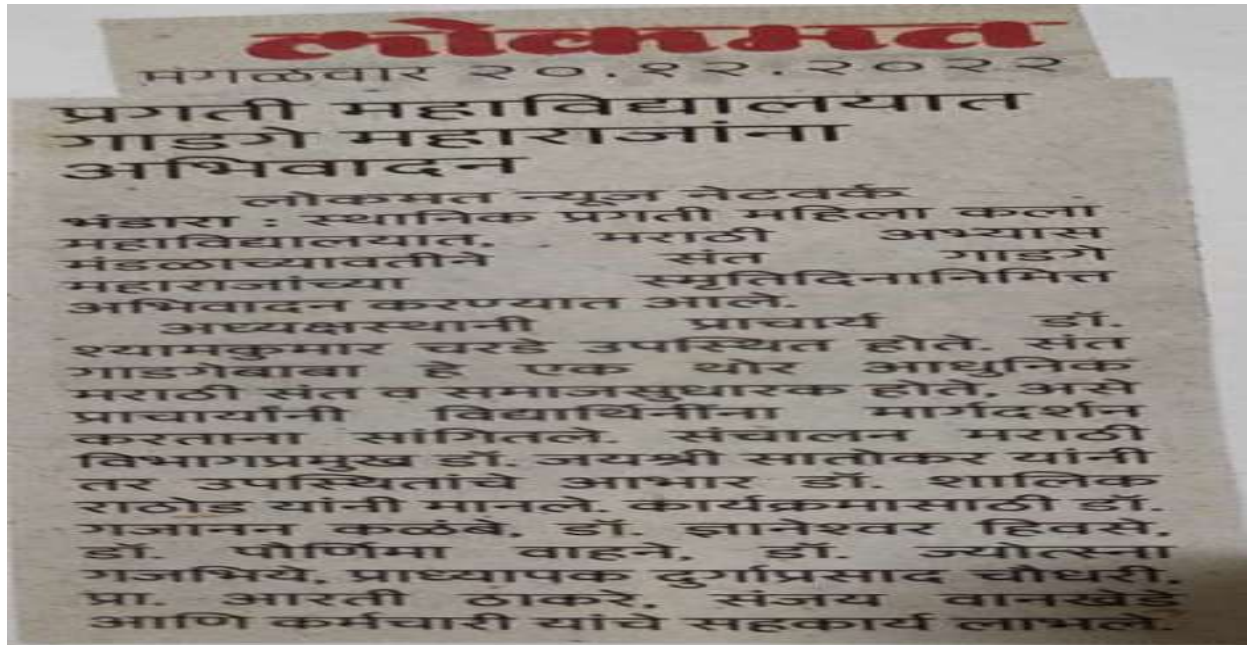 लोकमत
मंगळवार २०.१२.२०२२
प्रगती महाविद्यालयात
गाडगे महाराजांना
अभिवादन
लोकमत न्यूज नेटवर्क
भंडारा : स्थानिक प्रगती महिला कला
महाविद्यालयात, मराठी अभ्यास
मंडळाच्यावतीने संत गाडगे
महाराजांच्या स्मृतिदिनानिमित्त
अभिवादन करण्यात आले.
अध्यक्षस्थानी प्राचार्य डॉ.
श्यामकुमार चरडे उपस्थित होते. संत
गाडगेबाबा हे एक थोर आधुनिक
मराठी संत व समाजसुधारक होते, असे
प्राचार्यांनी विद्यार्थिनींना मार्गदर्शन
करताना सांगितले. संचालन मराठी
विभागप्रमुख डॉ. जयश्री सातोकर यांनी
तर उपस्थितांचे आभार डॉ. शालिक
राठोड यांनी मानले. कार्यक्रमासाठी डॉ.
गजानन कळंबे, डॉ. ज्ञानेश्वर हिवसे,
डॉ. पौर्णिमा वाहने, डॉ. ज्योत्स्ना
गजभिये, प्राध्यापक दुर्गाप्रसाद चौधरी,
प्रा. आरती ठाकरे, संजय वानखेडे
आणि कर्मचारी यांचे सहकार्य लाभले.